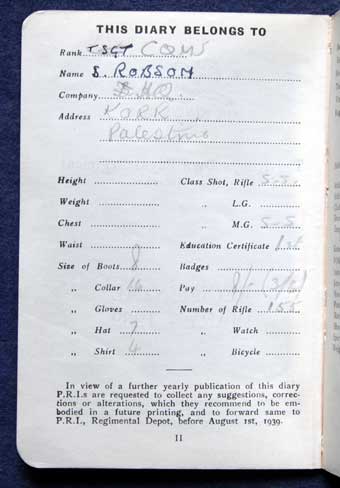 THIS DIARY BELONGS TO
Rank T SGT CQMS
Name S. ROBSON
Company HQ
Address
Palestine
Height Class Shot, Rifle
Weight „ L.G.
Chest „ M.G.
Waist Education Certificate 1st
Size of Boots 8 Badges
„ Collar 16 Pay
„ Gloves Number of Rifle 155
„ Hat 7 „ Watch
„ Shirt 4 „ Bicycle
In view of a further yearly publication of this diary
P.R.I.s are requested to collect any suggestions, correc-
tions or alterations, which they recommend to be em-
bodied in a future printing, and to forward same to
P.R.I., Regimental Depot, before August 1st, 1939.
11